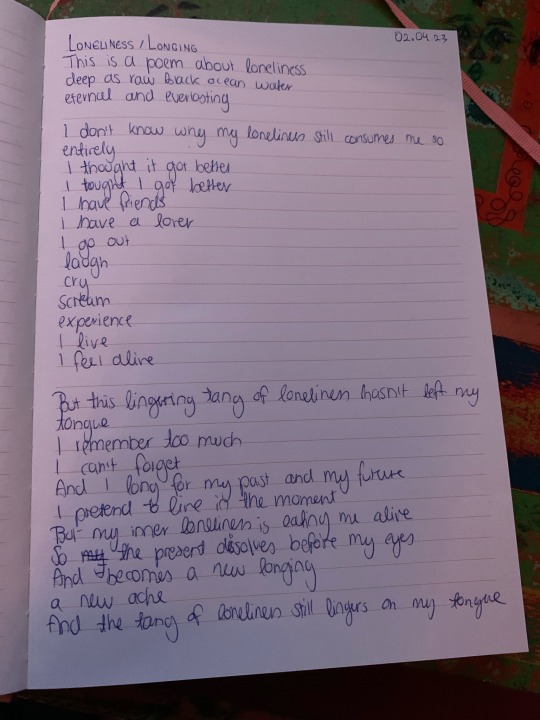 LONELINESS / LONGING 02.04.23
This is a poem about loneliness
deep as raw black ocean water
eternal and everlasting
I don't know why my loneliness still consumes me so
entirely
I thought it got better
I tought I got better
I have friends
I have a lover
I go out
laugh
cry
scream
experience
I live
I feel alive
But this linguring tang of loneliness hasn't left my
tongue
I remember too much
I can't forget
And I long for my past and my future
I pretend to live in the moment
But my inner loneliness is eating me alive
So the present disolves before my eyes
And becomes a new longing
a new ache
And the tang of loneliness still lingers on my tongue